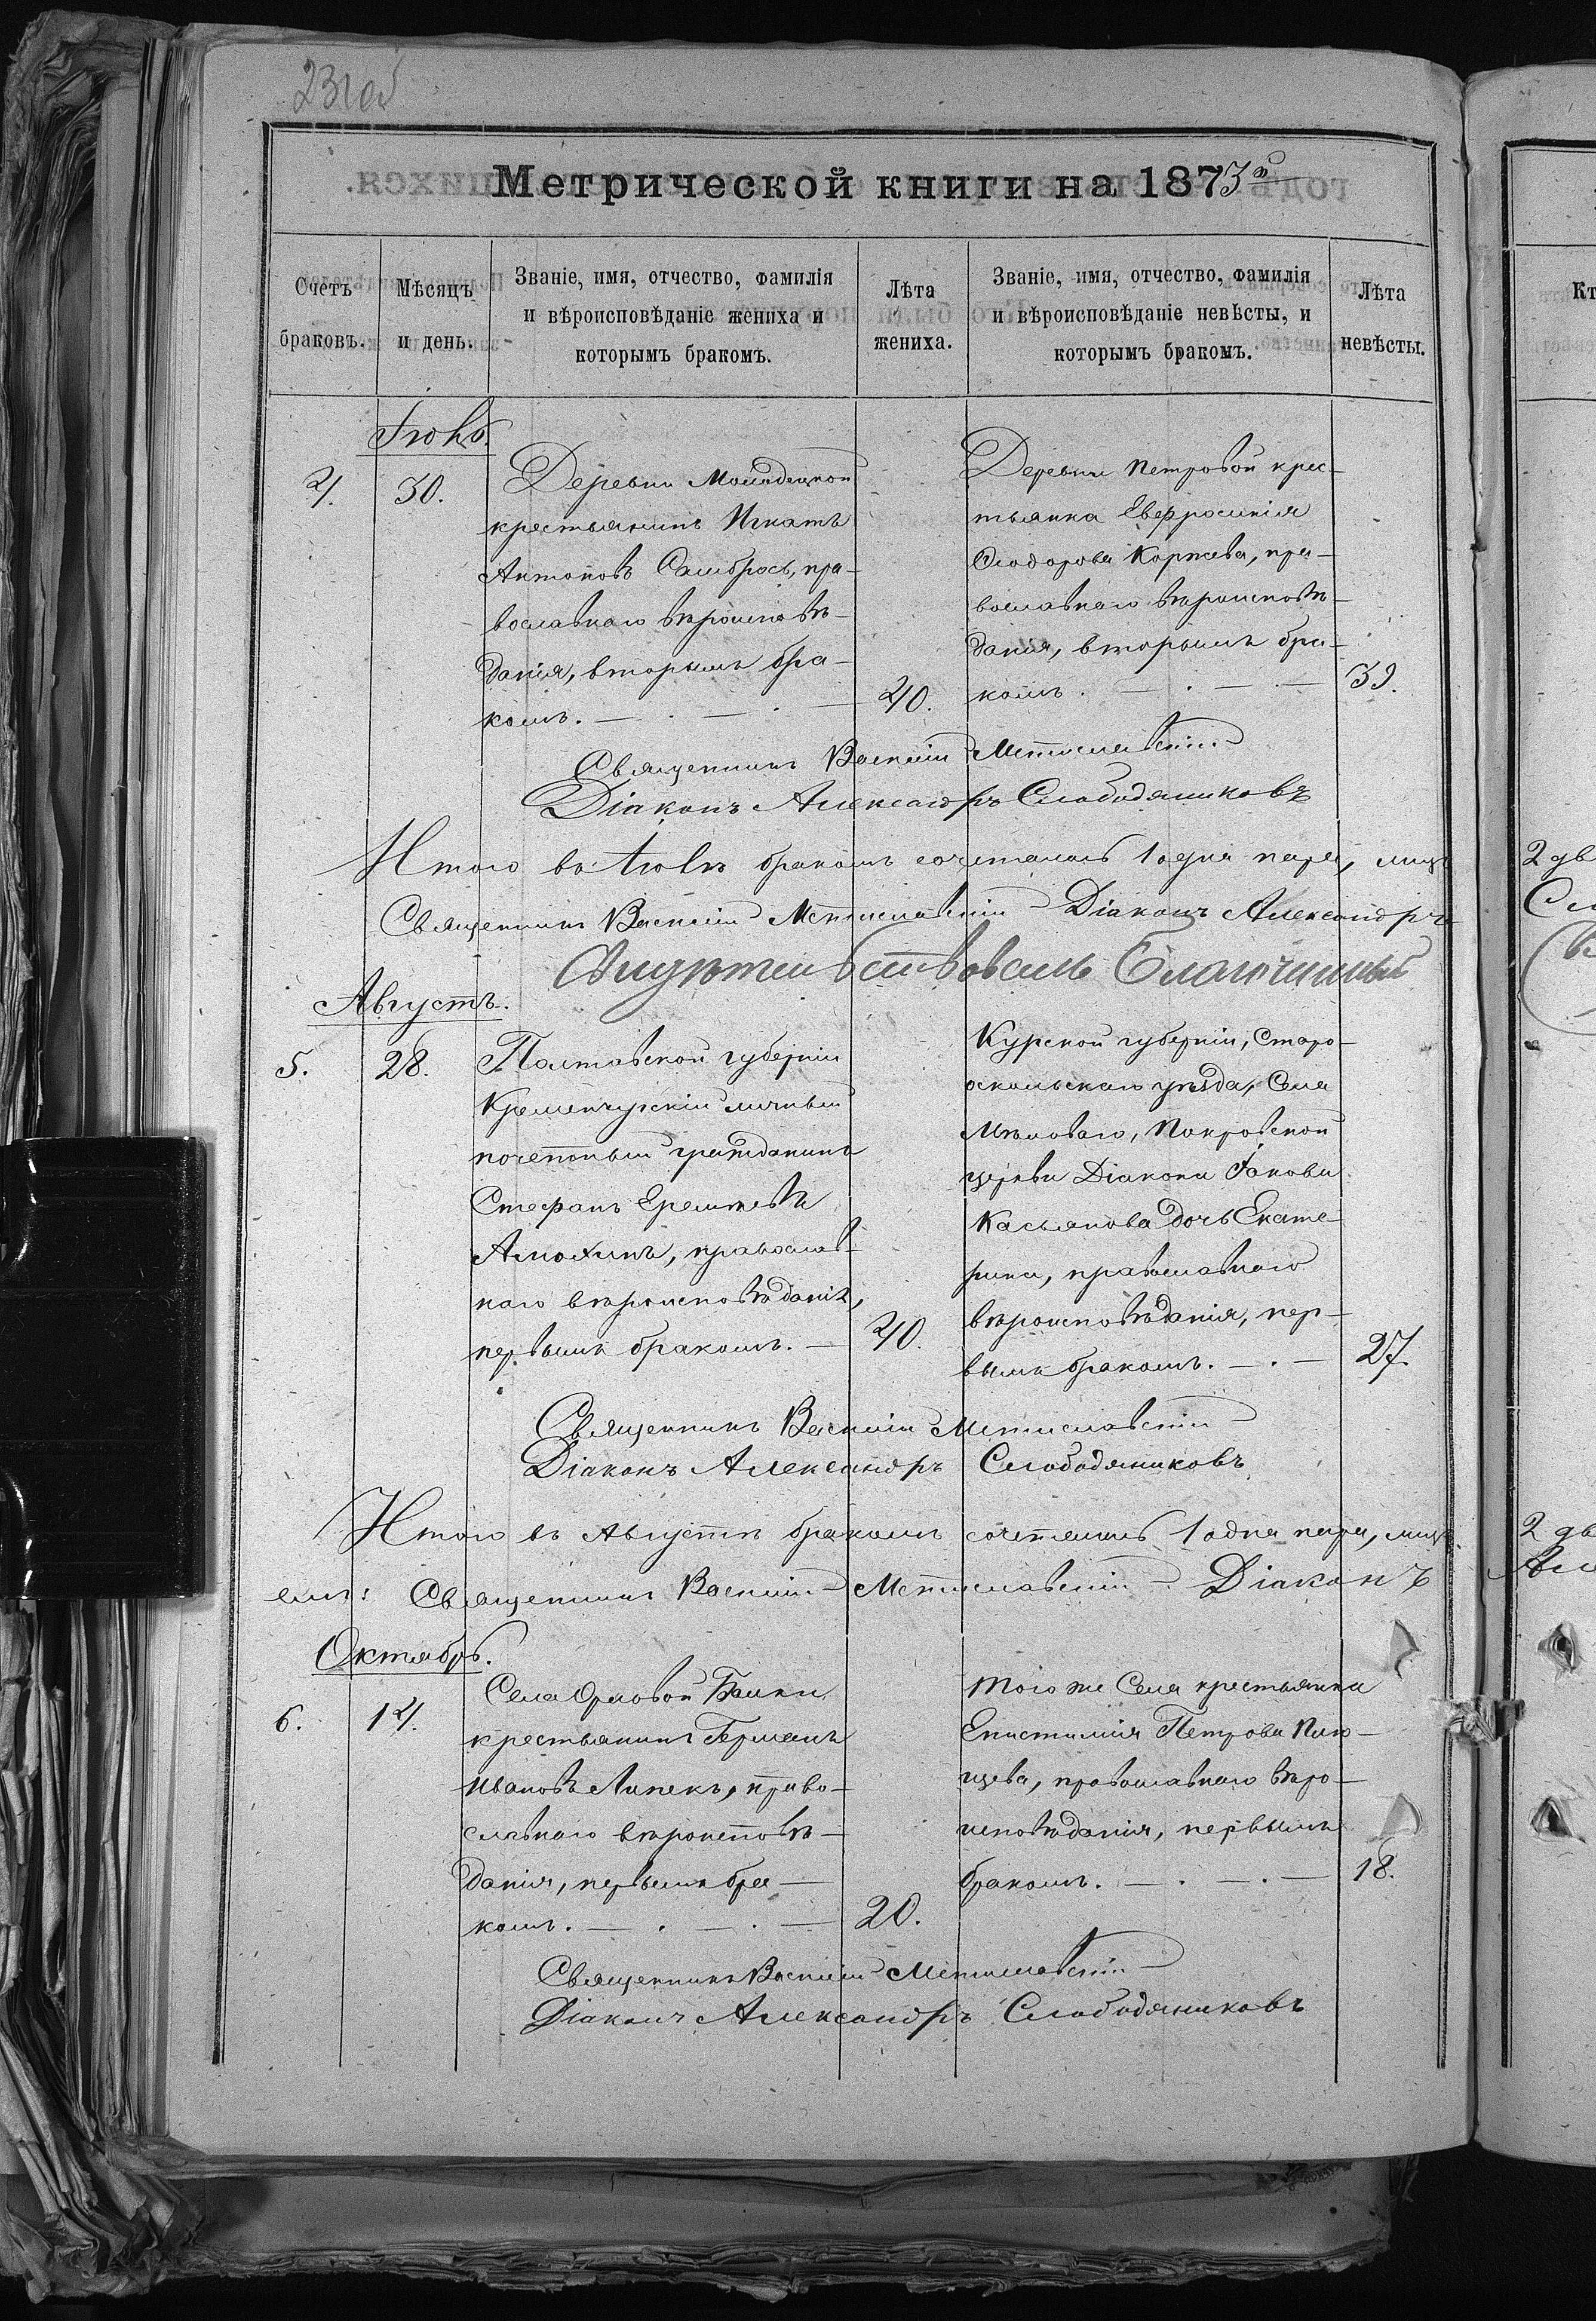 231об
Метрической книги на 1873й
Счетъ браковъ.
Мѣсяцъ и день.
Званіе, имя, отчество, фамилія
и вѣроисповѣданіе жениха и
которымъ бракомъ.
Лѣта жениха.
Званіе, имя, отчество, фамилія
и вѣроисповѣданіе невѣсты, и
которымъ бракомъ.
Лѣта невѣсты.
Іюль.
4.
30.
Деревни Молодецкой
крестьянинъ Игнатъ
Антоновъ Самбрось, пра-
вославнаго вѣроисповѣ-
данія, вторымъ бра-
комъ.
40.
Деревни Петровой крес-
тьянка Евфросинія
Ѳеодорова Коржева, пра-
вославнаго вѣроисповѣ-
данія, вторымъ бра-
комъ.
39.
Священникъ Василій Мстиславскій
Діаконъ Александръ Слободяниковъ
Итого въ Іюлѣ бракомъ сочетались 1 одна пара, лицъ
Священникъ Василій Мстиславскій Діаконъ Александръ
Свидѣтельствовалъ Благочинный
Августъ.
5.
28.
Полтавской губерніи
Кременчугскій личный
почетный гражданинъ
Стефанъ Еремѣевъ
Амохинъ, православ-
наго вѣроисповѣданія,
первымъ бракомъ.
40.
Курской губерніи, Старо-
оскольскаго уѣзда, Села
Мѣловаго, Покровской
церкви Діакона Іакова
Касьянова дочь Екате-
рина, православнаго
вѣроисповѣданія, пер-
вымъ бракомъ.
27.
Священникъ Василій Мстиславскій
Діаконъ Александръ Слободяниковъ
Итого въ Августѣ бракомъ сочетались 1 одна пара, лицъ
Священникъ Василій Мстиславскій Діаконъ
Октябрь.
6.
14.
Села Орловой Балки
крестьянинъ Германъ
Ивановъ Липекъ, право-
славнаго вѣроисповѣ-
данія, первымъ бра-
комъ.
20.
Того же Села крестьянка
Епистимія Петрова Пию-
щева, православнаго вѣро-
исповѣданія, первымъ
бракомъ.
18.
Священникъ Василій Мстиславскій
Діаконъ Александръ Слободяниковъ